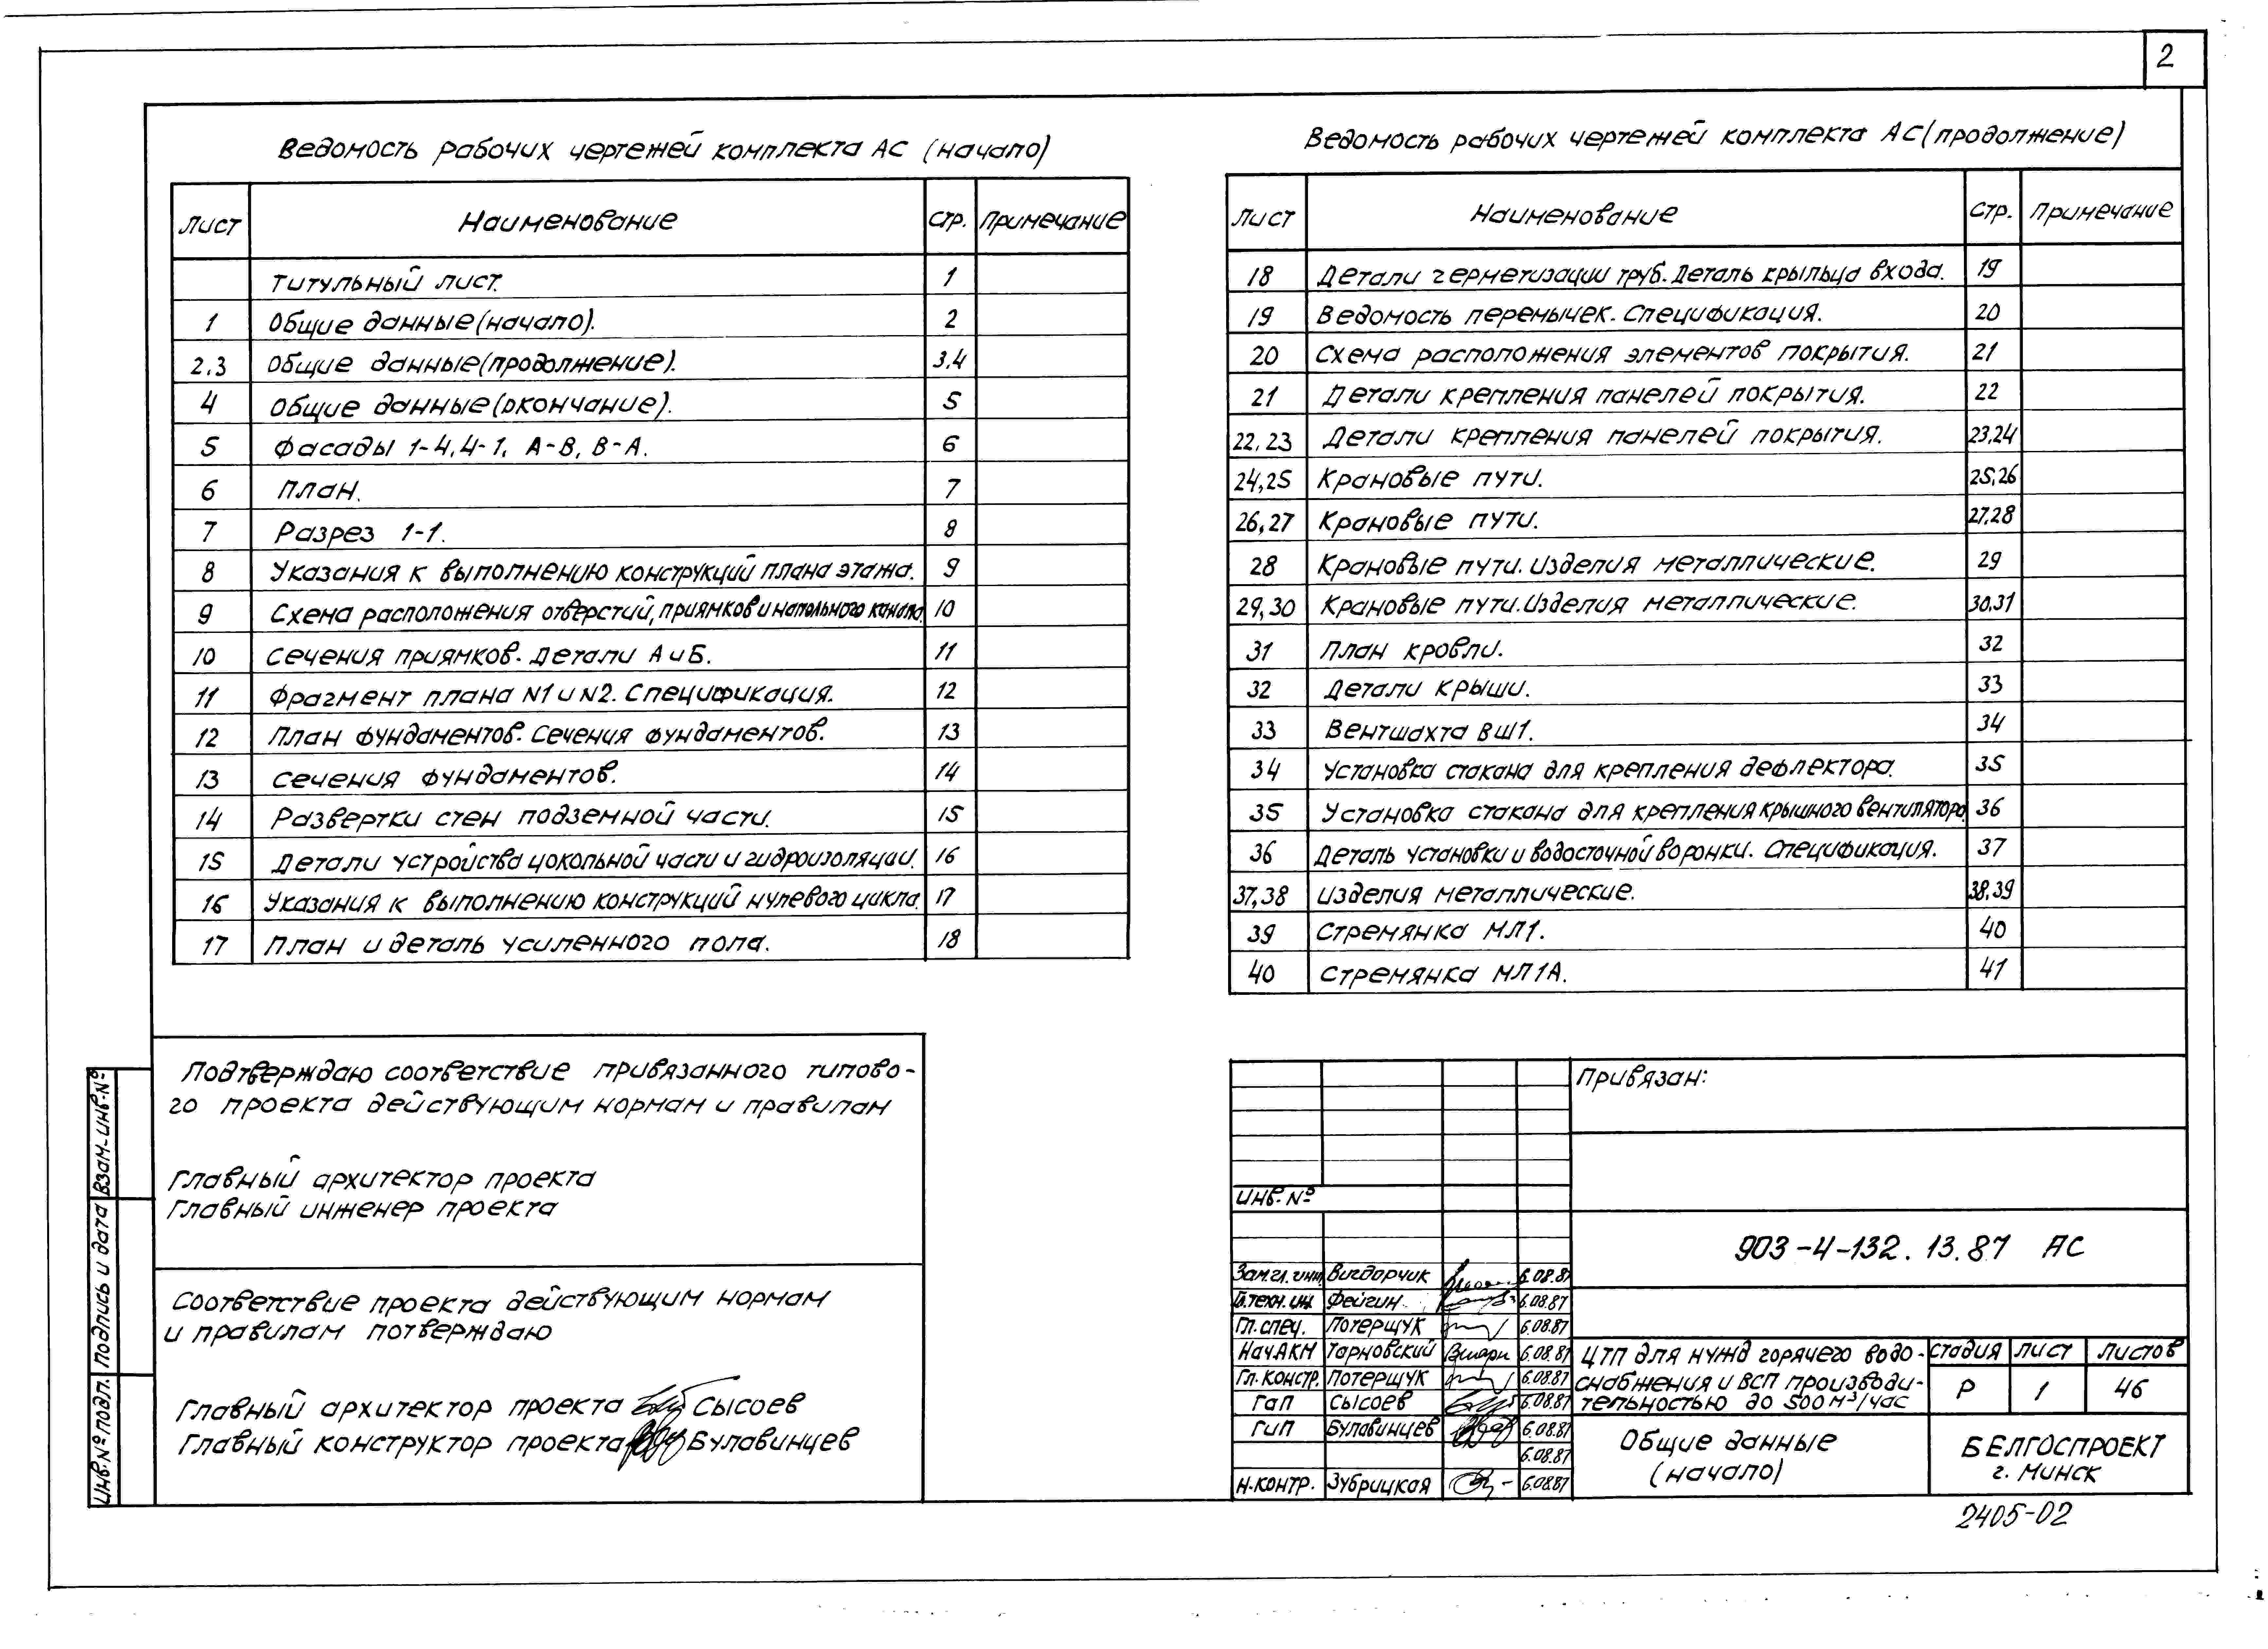 2
Ведомость рабочих чертежей комплекта АС (начало)
Лист Наименование Стр. Примечание
Титульный лист. 1
1 Общие данные (начало). 2
2,3 Общие данные (продолжение). 3,4
4 Общие данные (окончание). 5
5 Фасады 1-4, 4-1, А-В, В-А. 6
6 План. 7
7 Разрез 1-1. 8
8 Указания к выполнению конструкций плана этажа. 9
9 Схема расположения отверстий, приямков и напольного канала. 10
10 Сечения приямков. Детали А и Б. 11
11 Фрагмент плана N1 и N2. Спецификация. 12
12 План фундаментов. Сечения фундаментов. 13
13 Сечения фундаментов. 14
14 Развертки стен подземной части. 15
15 Детали устройства цокольной части и гидроизоляции. 16
16 Указания к выполнению конструкций нулевого цикла. 17
17 План и деталь усиленного пола. 18
Ведомость рабочих чертежей комплекта АС (продолжение)
Лист Наименование Стр. Примечание
18 Детали герметизации труб. Деталь крыльца входа. 19
19 Ведомость перемычек. Спецификация. 20
20 Схема расположения элементов покрытия. 21
21 Детали крепления панелей покрытия. 22
22,23 Детали крепления панелей покрытия. 23,24
24,25 Крановые пути. 25,26
26,27 Крановые пути. 27,28
28 Крановые пути. Изделия металлические. 29
29,30 Крановые пути. Изделия металлические. 30,31
31 План кровли. 32
32 Детали крыши. 33
33 Вентшахта ВШ1. 34
34 Установка стакана для крепления дефлектора. 35
35 Установка стакана для крепления крышного вентилятора. 36
36 Деталь установки и водосточной воронки. Спецификация. 37
37,38 Изделия металлические. 38,39
39 Стремянка МЛ1. 40
40 Стремянка МЛ1А. 41
Подтверждаю соответствие привязанного типово-
го проекта действующим нормам и правилам
Главный архитектор проекта
Главный инженер проекта
Соответствие проекта действующим нормам
и правилам потверждаю
Главный архитектор проекта Сысоев
Главный конструктор проекта Булавинцев
Инв. № подл. Подпись и дата Взам. инв. №
Привязан:
Инв. №
903-4-132.13.87 АС
Зам.гл.инж. Вигдорчик 6.08.87
Гл.техн.инж. Фейгин 6.08.87
Гл.спец. Потерщук 6.08.87
Нач АКМ Тарновский 6.08.87
Гл.констр. Потерщук 6.08.87
ГАП Сысоев 6.08.87
ГИП Булавинцев 6.08.87
6.08.87
Н.контр. Зубрицкая 6.08.87
ЦТП для нужд горячего водо-
снабжения и ВСП производи-
тельностью до 500 м³/час
Стадия Лист Листов
Р 1 46
Общие данные
(начало)
БЕЛГОСПРОЕКТ
г. Минск
2405-02